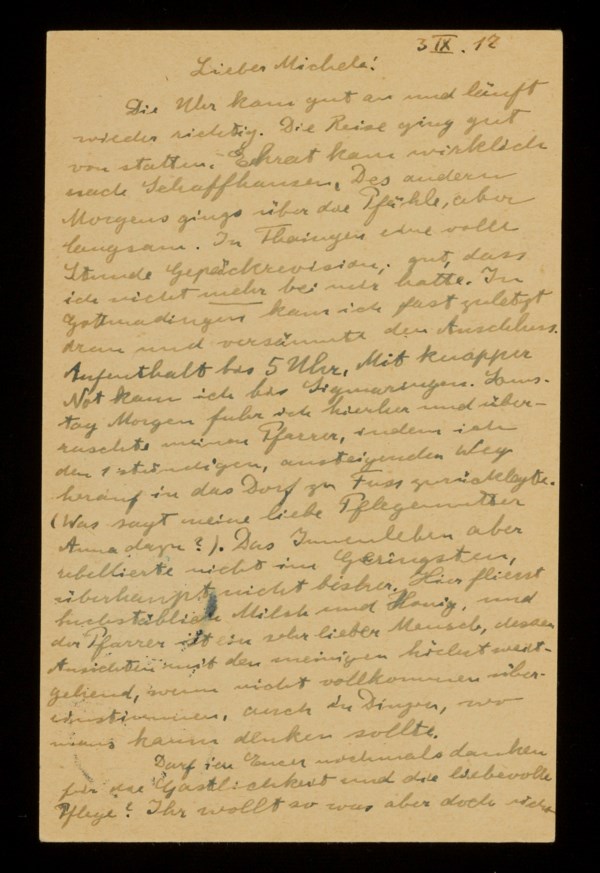 3 IX. 17
Lieber Michele!
Die Uhr kam gut an und läuft
wieder richtig. Die Reise ging gut
von statten. Ehrat kam wirklich
nach Schaffhausen. Des andern
Morgens gings über die Pfähle, aber
langsam. In Thaingen eine volle
Stunde Gepäckrevision; gut, dass
ich nicht mehr bei mir hatte. In
Gottmadingen kam ich fast zuletzt
dran und versäumte den Anschluss.
Aufenthalt bis 5 Uhr. Mit knapper
Not kam ich bis Sigmaringen. Sams-
tag Morgen fuhr ich hierher und über-
raschte meinen Pfarrer, indem ich
den 1 stündigen, ansteigenden Weg
herauf in das Dorf zu Fuss zurücklegte.
(Was sagt meine liebe Pflegemutter
Anna dazu?). Das Innenleben aber
rebellierte nicht im Geringsten,
überhaupt nicht bisher. Hier fliesst
buchstäblich Milch und Honig, und
der Pfarrer ist ein sehr lieber Mensch, dessen
Ansichten mit den meinigen höchst weit-
gehend, wenn nicht vollkommen über-
einstimmen, auch in Dingen, wo
mans kaum denken sollte.
Darf ich Euch nochmals danken
für die Gastlichkeit und die liebevolle
Pflege? Ihr wollt so was aber doch nicht